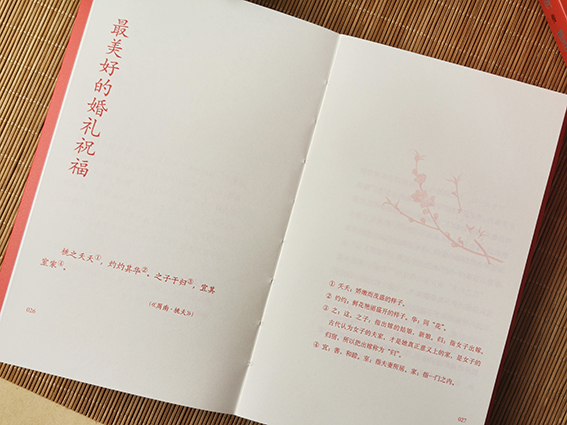 最美好的婚礼祝福
桃之夭夭①，灼灼其华②。之子于归③，宜其
室家④。
（《周南·桃夭》）
026
① 夭夭：娇嫩而茂盛的样子。
② 灼灼：鲜花艳丽盛开的样子。华：同“花”。
③ 之：这。之子：指出嫁的姑娘、新娘。归：指女子出嫁。
古代认为女子的夫家，才是她真正意义上的家，是女子的
归宿，所以把出嫁称为“归”。
④ 宜：善，和睦。室：指夫妻所居，家：指一门之内。
027